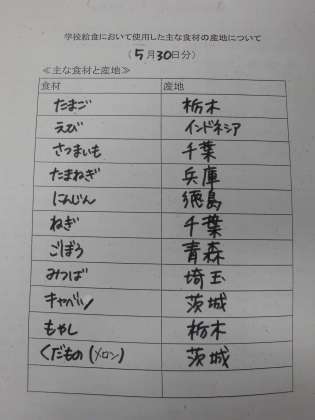 学校給食において使用した主な食材の産地について
(5月30日分)
≪主な食材と産地≫
食材 産地
たまご 栃木
えび インドネシア
さつまいも 千葉
たまねぎ 兵庫
にんじん 徳島
ねぎ 千葉
ごぼう 青森
みつば 埼玉
キャベツ 茨城
もやし 栃木
くだもの(メロン) 茨城